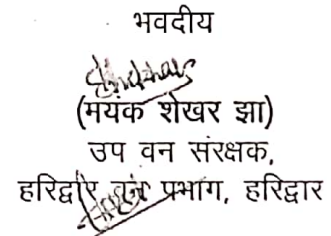 भवदीय
(मयंक शेखर झा)
उप वन संरक्षक,
हरिद्वार वन प्रभाग, हरिद्वार